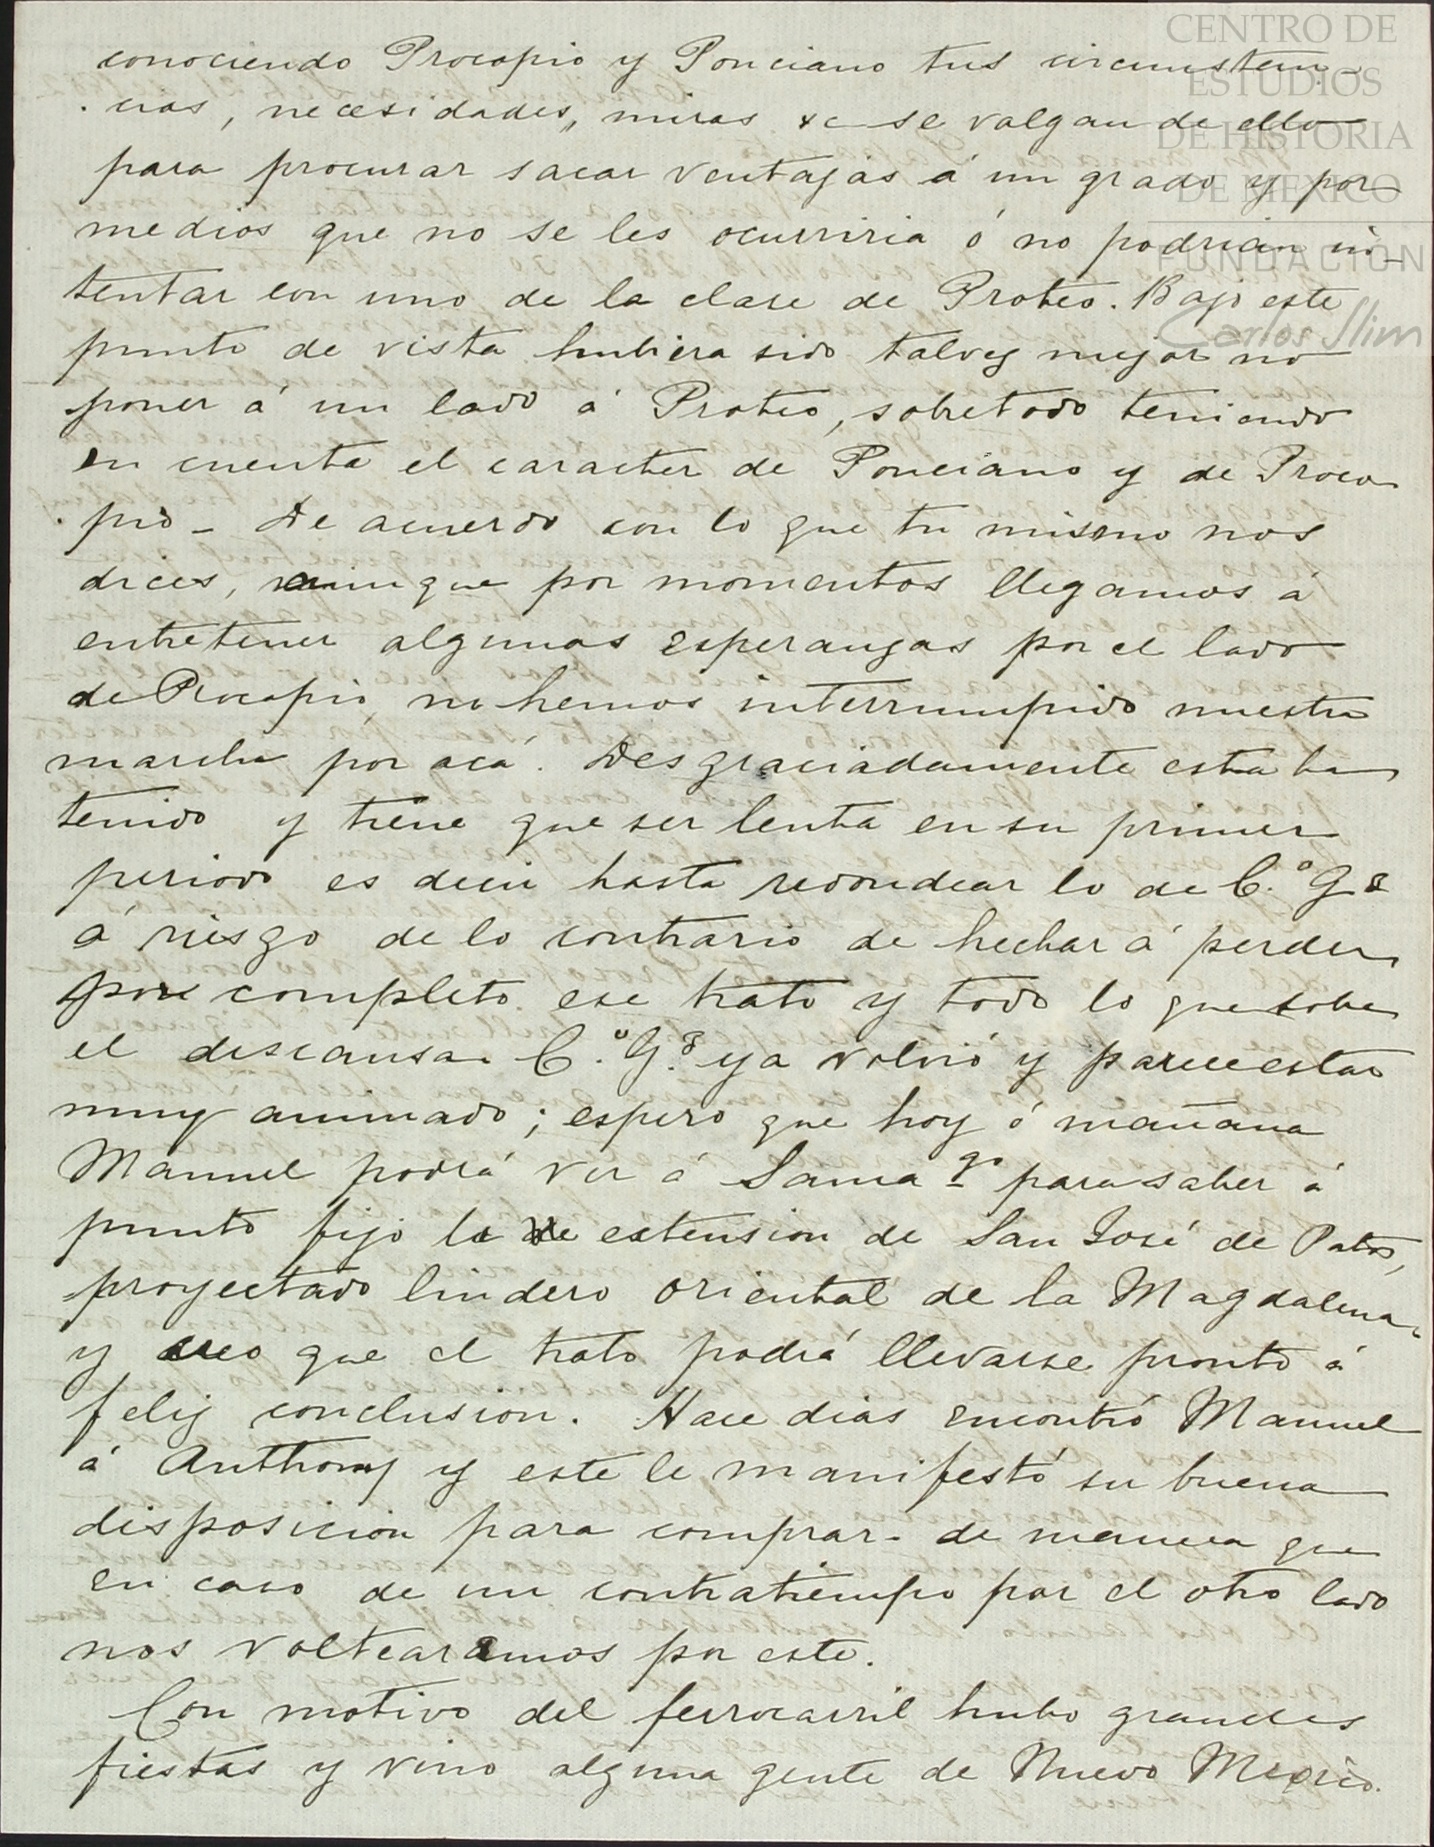 CENTRO DE
ESTUDIOS
DE HISTORIA
DE MEXICO
FUNDACIÓN
Carlos Slim
conociendo Procopio y Ponciano tus circunstan-
cias, necesidades, miras &c se valgan de ello
para procurar sacar ventajas á un grado y por
medios que no se les ocurriria ó no podrian in-
tentar con uno de la clase de Proteo. Bajo este
punto de vista hubiera sido talvez mejor no
poner á un lado á Proteo, sobretodo teniendo
en cuenta el caracter de Ponciano y de Proco
pio - De acuerdo con lo que tu mismo nos
dices, aunque por momentos llegamos á
entretener algunas esperanzas por el lado
de Procopio, no hemos interrumpido nuestra
marcha por acá. Desgraciadamente esta ha
tenido y tiene que ser lenta en su primer
periodo es decir hasta redondear lo de C.º G.s
á riesgo de lo contrario de hechar á perder
por completo ese trato y todo lo que sobre
el descansa. C.º G.s ya volvió y parece estar
muy animado; espero que hoy ó mañana
Manuel podrá ver á Sama para saber á
punto fijo la extension de San José de Patos,
proyectado lindero oriental de la Magdalena.
y creo que el trato podrá llevarse pronto á
feliz conclusion. Hace dias encontró Manuel
á Anthony y este le manifestó su buena
disposicion para comprar - de manera que
en caso de un contratiempo por el otro lado
nos voltearamos por este.
Con motivo del ferrocarril hubo grandes
fiestas y vino alguna gente de Nuevo Mexico.